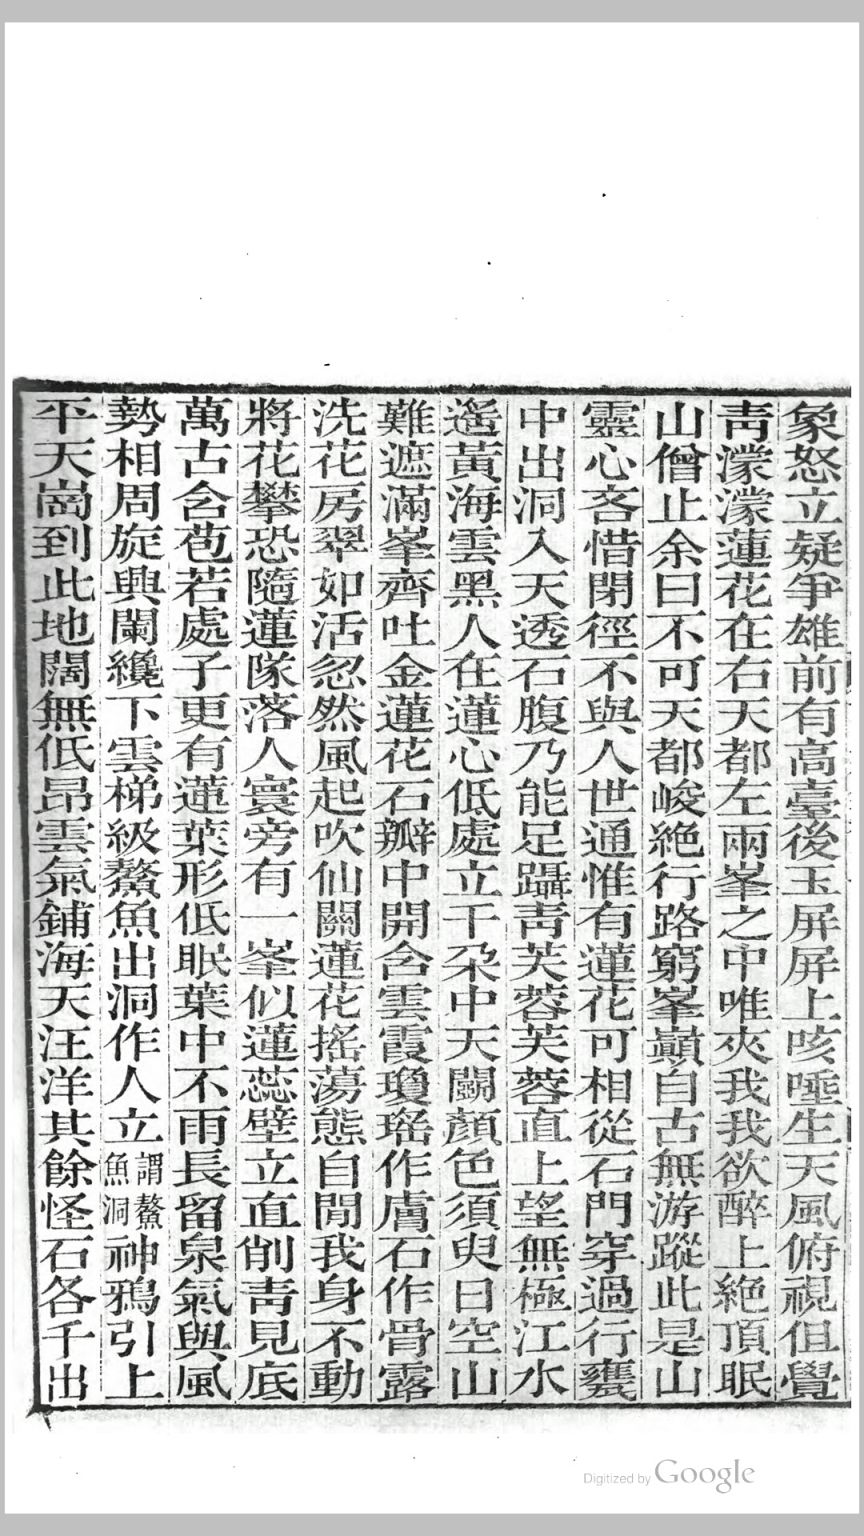 象怒立疑爭雄前有高臺後玉屏屏上咳唾生天風俯視但覺
靑濛濛蓮花在右天都左兩峯之中唯夾我我欲醉上絶頂眠
山僧止余曰不可天都峻絶行路窮峯巓自古無游蹤此是山
靈心吝惜閉徑不與人世通惟有蓮花可相從石門穿過行甕
中出洞入天透石腹乃能足躡靑芙蓉芙蓉直上望無極江水
遙黃海雲黑人在蓮心低處立千朶中天鬭顏色須臾日空山
難遮滿峯齊吐金蓮花石瓣中開含雲霞瓊瑤作膚石作骨露
洗花房翠如活忽然風起吹仙關蓮花搖蕩態自閒我身不動
將花攀恐隨蓮隊落人寰旁有一峯似蓮蕊壁立直削靑見底
萬古含苞若處子更有蓮葉形低眠葉中不雨長留泉氣與風
勢相周旋興闌纔下雲梯級鰲魚出洞作人立謂鰲魚洞神鴉引上
平天崗到此地闊無低昂雲氣鋪海天汪洋其餘怪石各千出
Digitized by Google